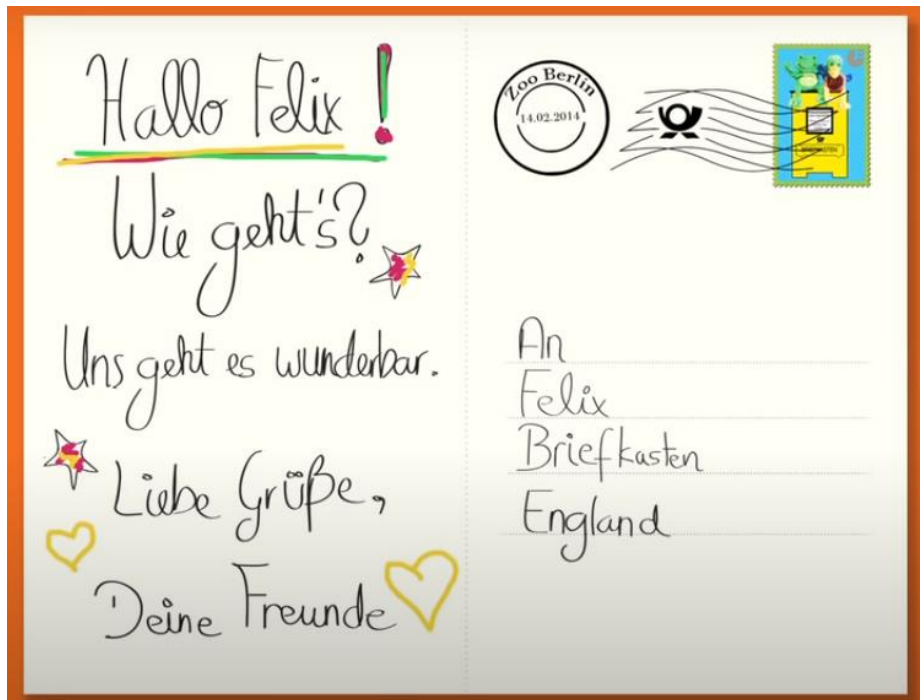 Hallo Felix!
Wie geht's?
Uns geht es wunderbar.
Liebe Grüße,
Deine Freunde
Zoo Berlin
14.02.2014
An
Felix
Briefkasten
England